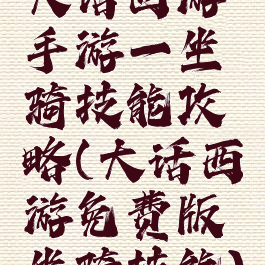 大话西游
手游一坐
骑技能攻
略(大话西
游免费版
坐骑技能)